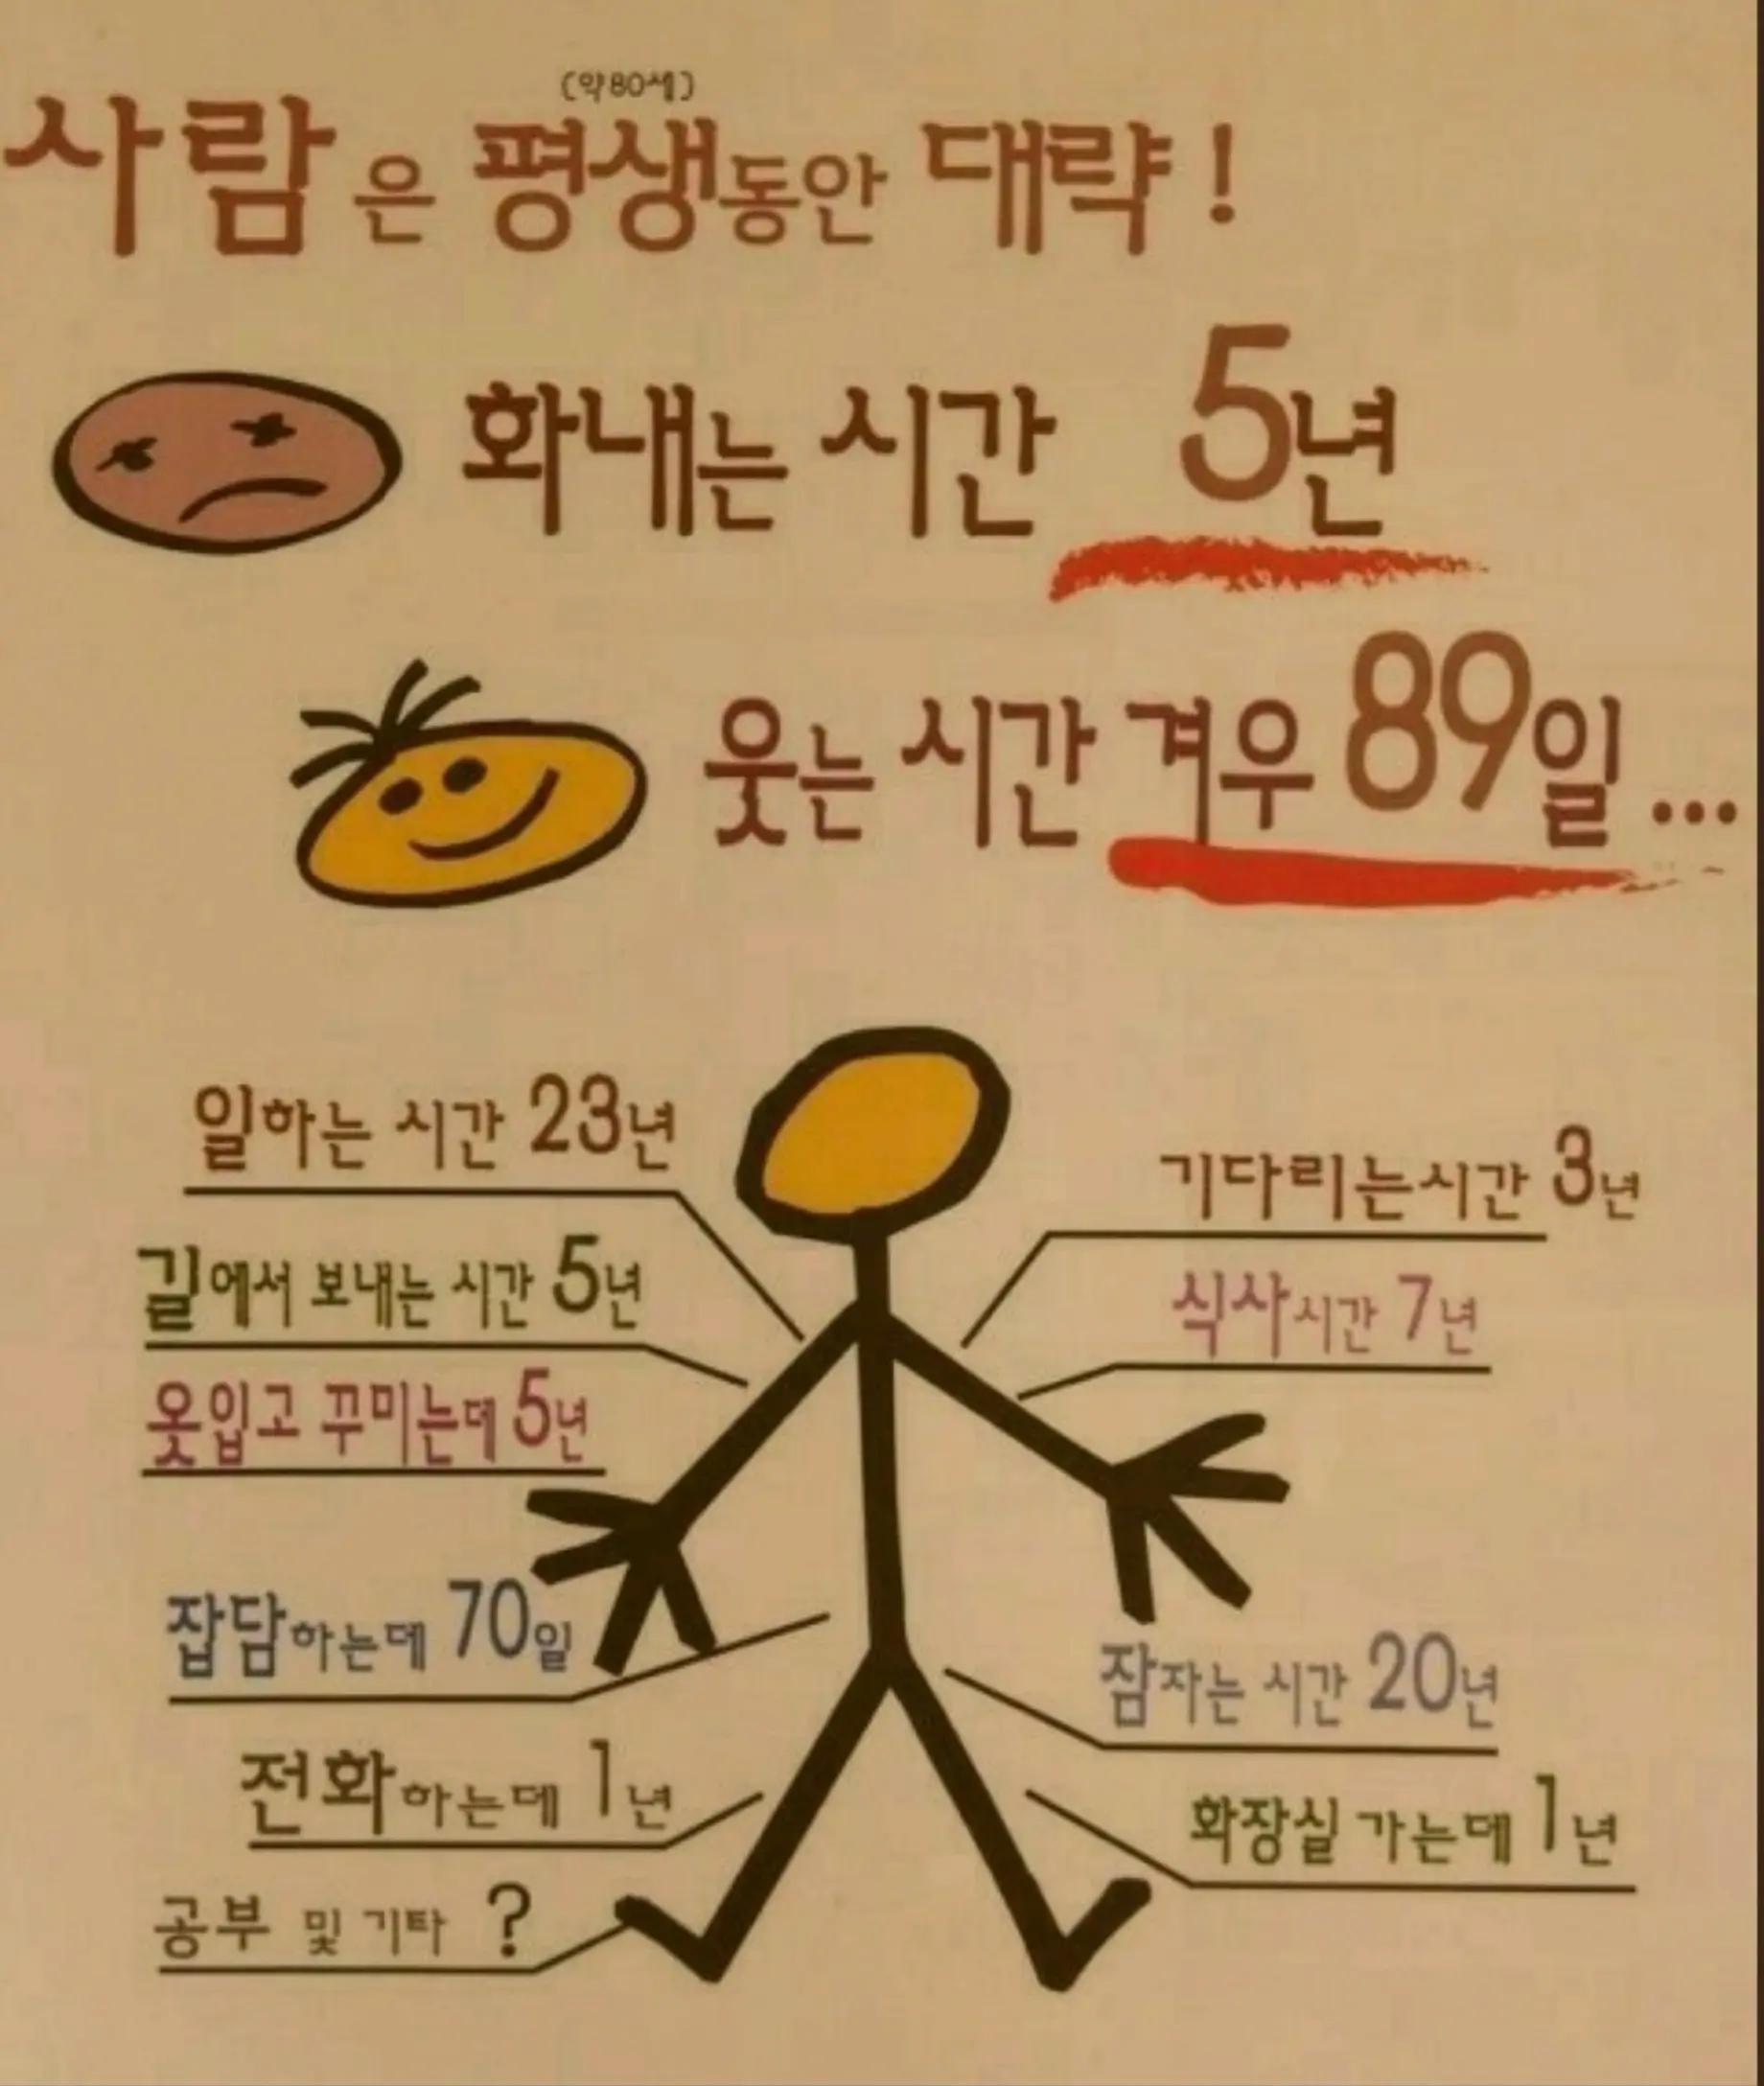 (약80세)
사람은 평생동안 대략!
화내는 시간 5년
웃는 시간 겨우 89일...
일하는 시간 23년
길에서 보내는 시간 5년
옷입고 꾸미는데 5년
잡담하는데 70일
전화하는데 1년
공부 및 기타 ?
기다리는시간 3년
식사시간 7년
잠자는 시간 20년
화장실 가는데 1년